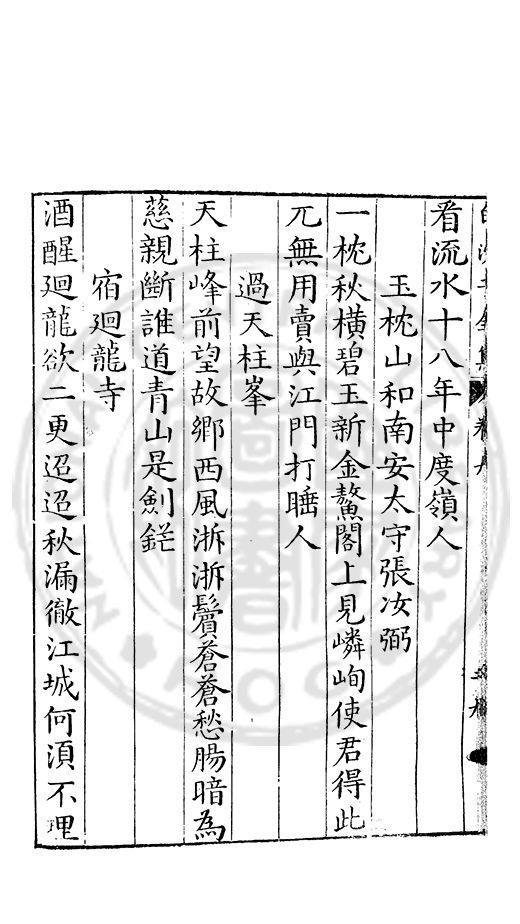 看流水十八年中度嶺人
玉枕山和南安太守張汝弼
一枕秋橫碧玉新金鰲閣上見嶙峋使君得此
兀無用賣與江門打睡人
過天柱峯
天柱峰前望故鄉西風浙浙鬢蒼蒼愁腸暗為
慈親斷誰道青山是劍鋩
宿廻龍寺
酒醒廻龍欲二更迢迢秋漏徹江城何湏不理